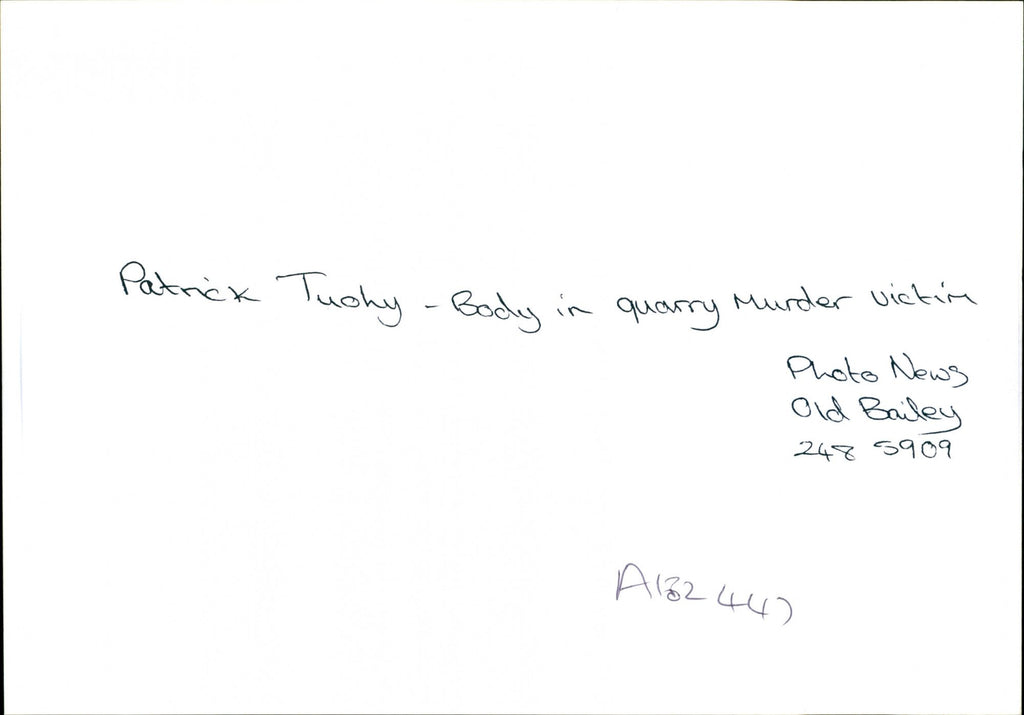 Patrick Tuohy - Body in quarry Murder victim
Photo News
Old Bailey
248 5909